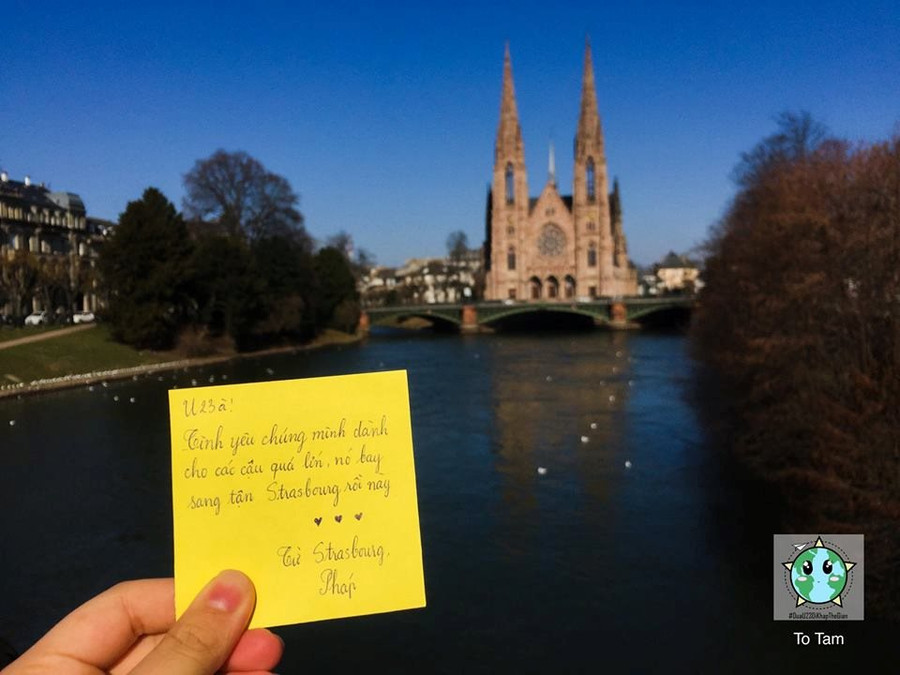 U23 à!
Tình yêu chúng mình dành
cho các cậu quá lớn, nó bay
sang tận Strasbourg rồi này
Từ Strasbourg,
Pháp
#DuaU23DiKhapTheGian
To Tam